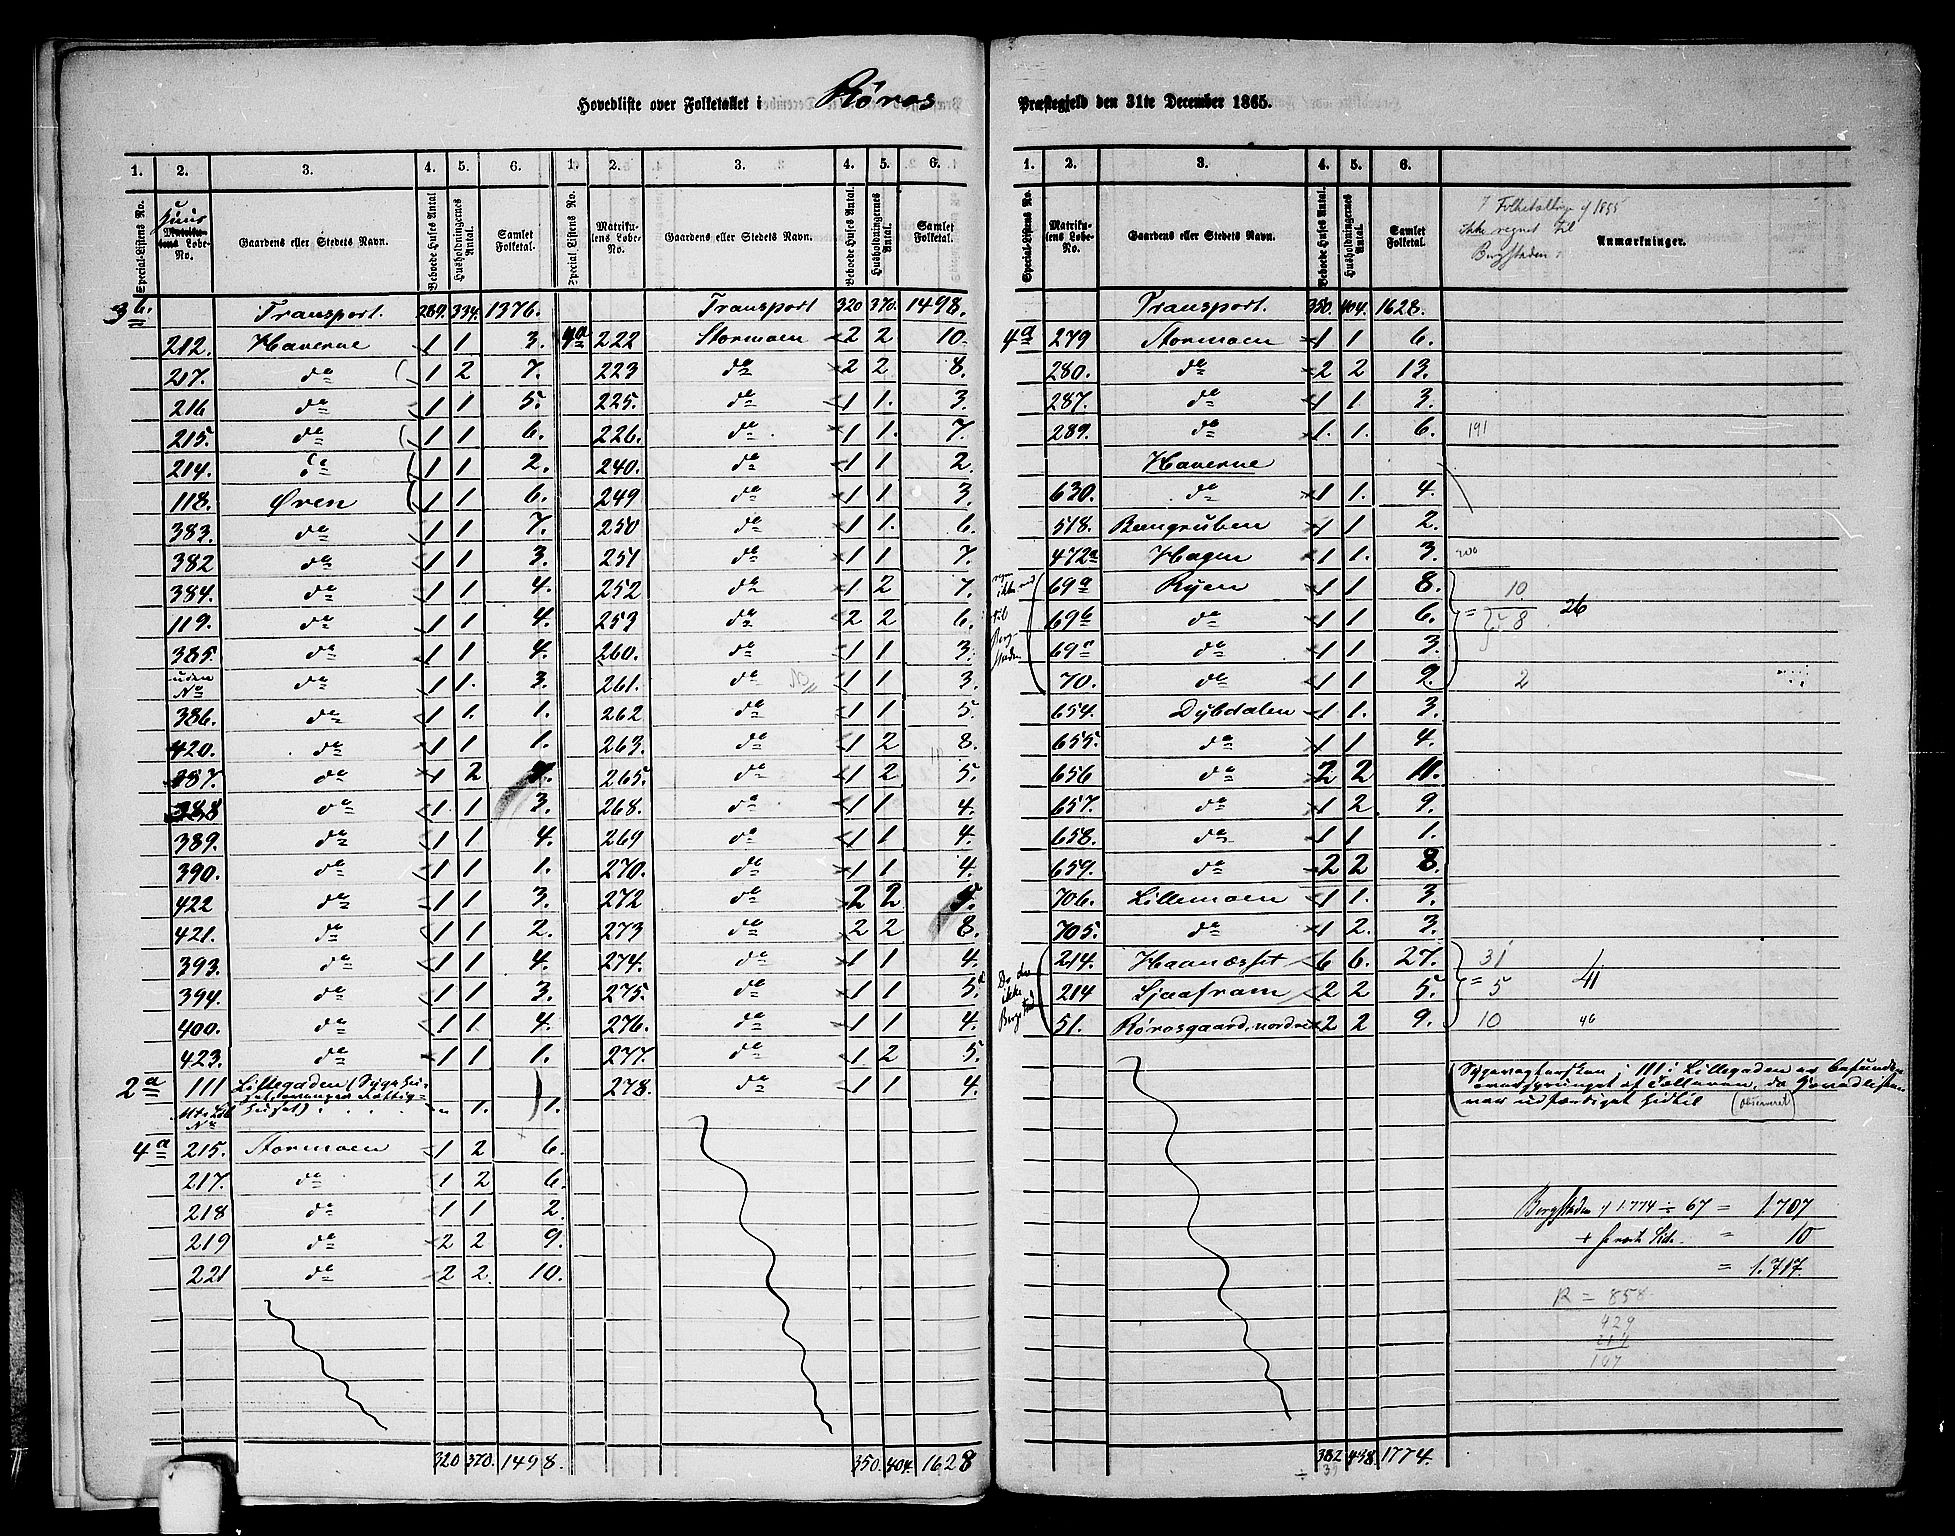 Hovedliste over Folketallet i Røros Præstegjeld den 31te December 1865.
1. 2. 3. 4. 5. 6. 1. 2. 3. 4. 5. 6.
Special-Listens No. Huus Matrikulens Løbe-No. Gaardens eller Stedets Navn. Beboede Huses Antal Husholdningernes Antal. Samlet Folketal. Special Listens No. Matrikulens Løbe-No. Gaardens eller Stedets Navn. Beboede Huses Antal. Husholdningernes Antal. Samlet Folketal.
3 b. Transport. 289. 334. 1376. Transport 320 370. 1498.
212. Haverne 1 1 3. 4a 222 Stormoen 2 2 10.
217. do 1 2 7. 223 do 2 2 8.
216 do 1 1 5. 225. do 1 1. 3.
215. do 1 1 6. 226. do 1 1. 7.
214. do 1 1 2. 240. do 1 1 2.
118. Øren 1 1 6. 249 do 1 1 3.
383. do 1 1 7. 250 do 1 1. 6.
382 do 1 1 3. 251 do 1 1 7.
384. do 1 1 4. 252 do 1 2 7.
119. do 1 1 4. 253 do 2 2 6.
385. do 1 1 4. 260. do 1 1 3.
uden No do 1 1. 3. 261. do 1 1 3.
386. do 1 1. 1. 262 do 1 1 5.
420. do 1 1 1. 263. do 1 2 8.
387. do 1 2 265. do 1 2 5.
388 do 1 1 3. 268. do 1 1 4.
389. do 1 1 4. 269 do 1 1 4.
390. do 1 1 1. 270. do 1 1 4.
422 do 1 1 3. 272 do 2 2
421. do 1 1 2. 273 do 2 2 8.
393. do 1 1 4. 274. do 1 1 4.
394. do 1 1 3. 275. do 1 1 5.
400. do 1 1 4. 276. do 1 1 4.
423. do 1 1 1. 277. do 1 2 5.
2 a 111 Lillegaden (Sygehu- 278. do 1 1 4.
huset) 1. 1.
4 a 215. Stormoen 1 2 6.
217. do 1 2 6.
218 do 1 1 2.
219 do 2 2 9.
221 do 2 2. 10.
320 370. 1498. 350. 404. 1628
1. 2. 3. 4. 5. 6.
Special-Listens No. Matrikulens Løbe-No. Gaardens eller Stedets Navn. Beboede Huses Antal. Husholdningernes Antal. Samlet Folketal. Anmærkninger.
ikke regnet til
Bergstaden
Transport. 350. 404. 1628.
4 a 279 Stormoen 1 1 6.
280. do 2 2 13.
287. do 1 1 3.
289. do 1. 1. 6. 191
Haverne
630. do 1 1. 4.
518. 1 1 2.
472a Hagen 1 1. 3. 200
69a Ryen 1 1 8. 10
69b do 1 1 6. = 8 26
69c do 1 1 3.
70. do 1 1 2. 2
ikke til Bergstaden
654. Dybdalen 1 1. 3.
655. do 1 1 4.
656 do 2 2 11.
657. do 1 2 9.
658. do 1 1 1.
659. do 2 2 8.
706. Lillemoen 1 1. 3.
705. do 1 2. 3.
214. Haanæsset 6 6. 27. 31
214 Sjaafram 2 2 5. = 5 41
51. Rørosgaard, nordre 2 2 9. 10 46
ikke Bergstad
111 i Lillegaden er
(observeret)
Bergstaden 1.774 ÷ 67 = 1.707
+ = 10
= 1.717.
R = 858
429
214
107
382 438 1774.